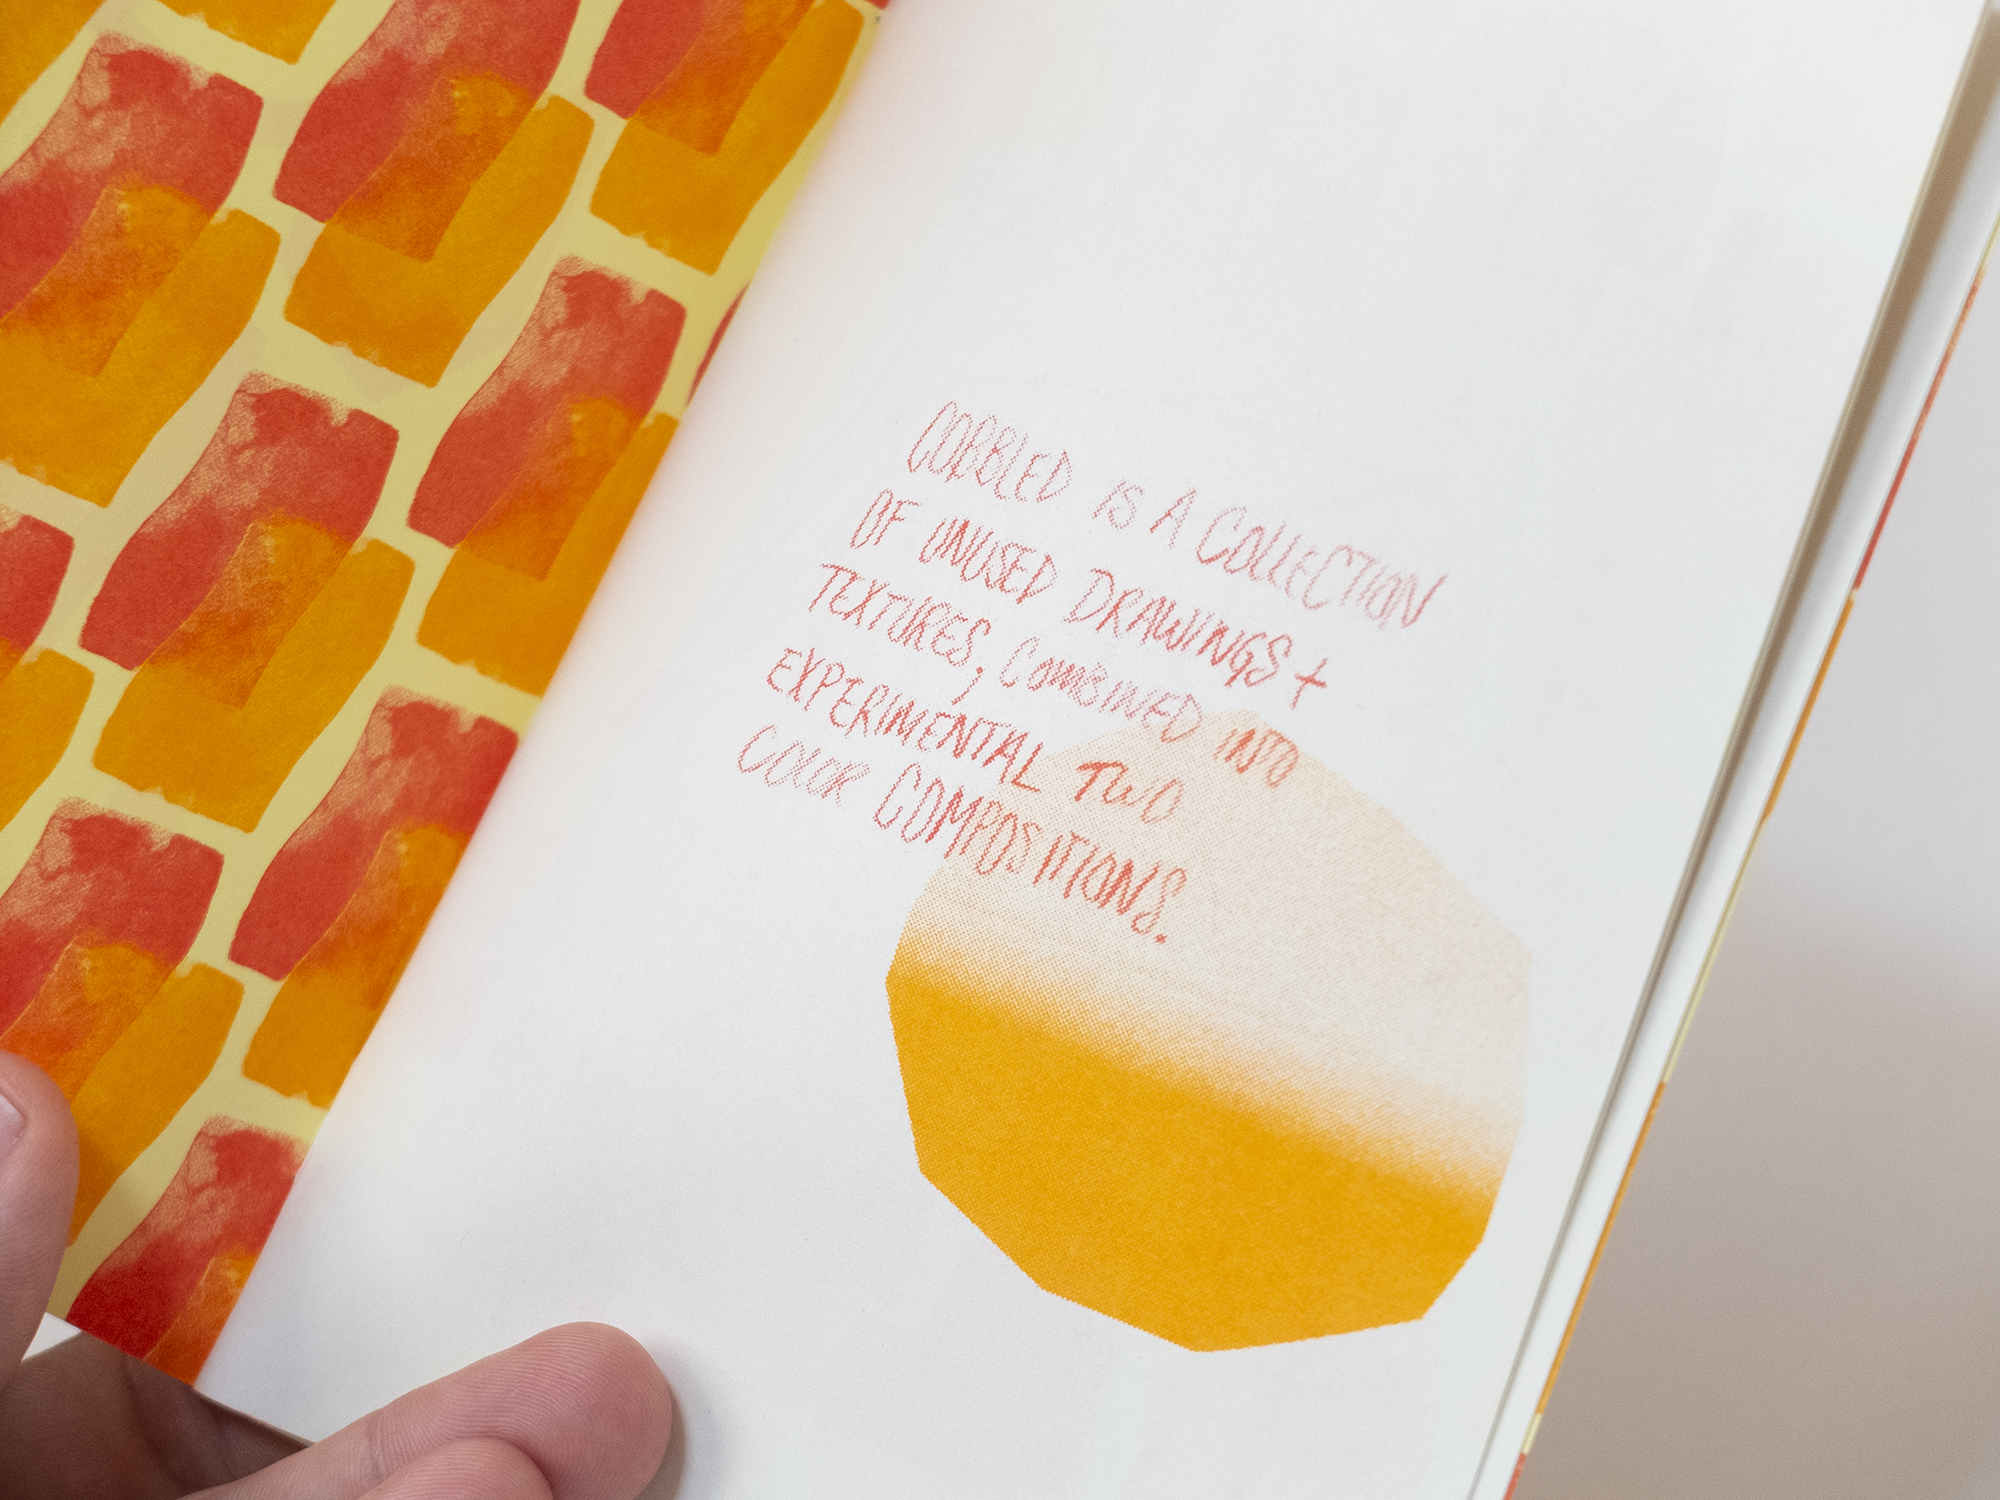 COBBLED IS A COLLECTION
OF UNUSED DRAWINGS +
TEXTURES, COMBINED INTO
EXPERIMENTAL TWO
COLOR COMPOSITIONS.